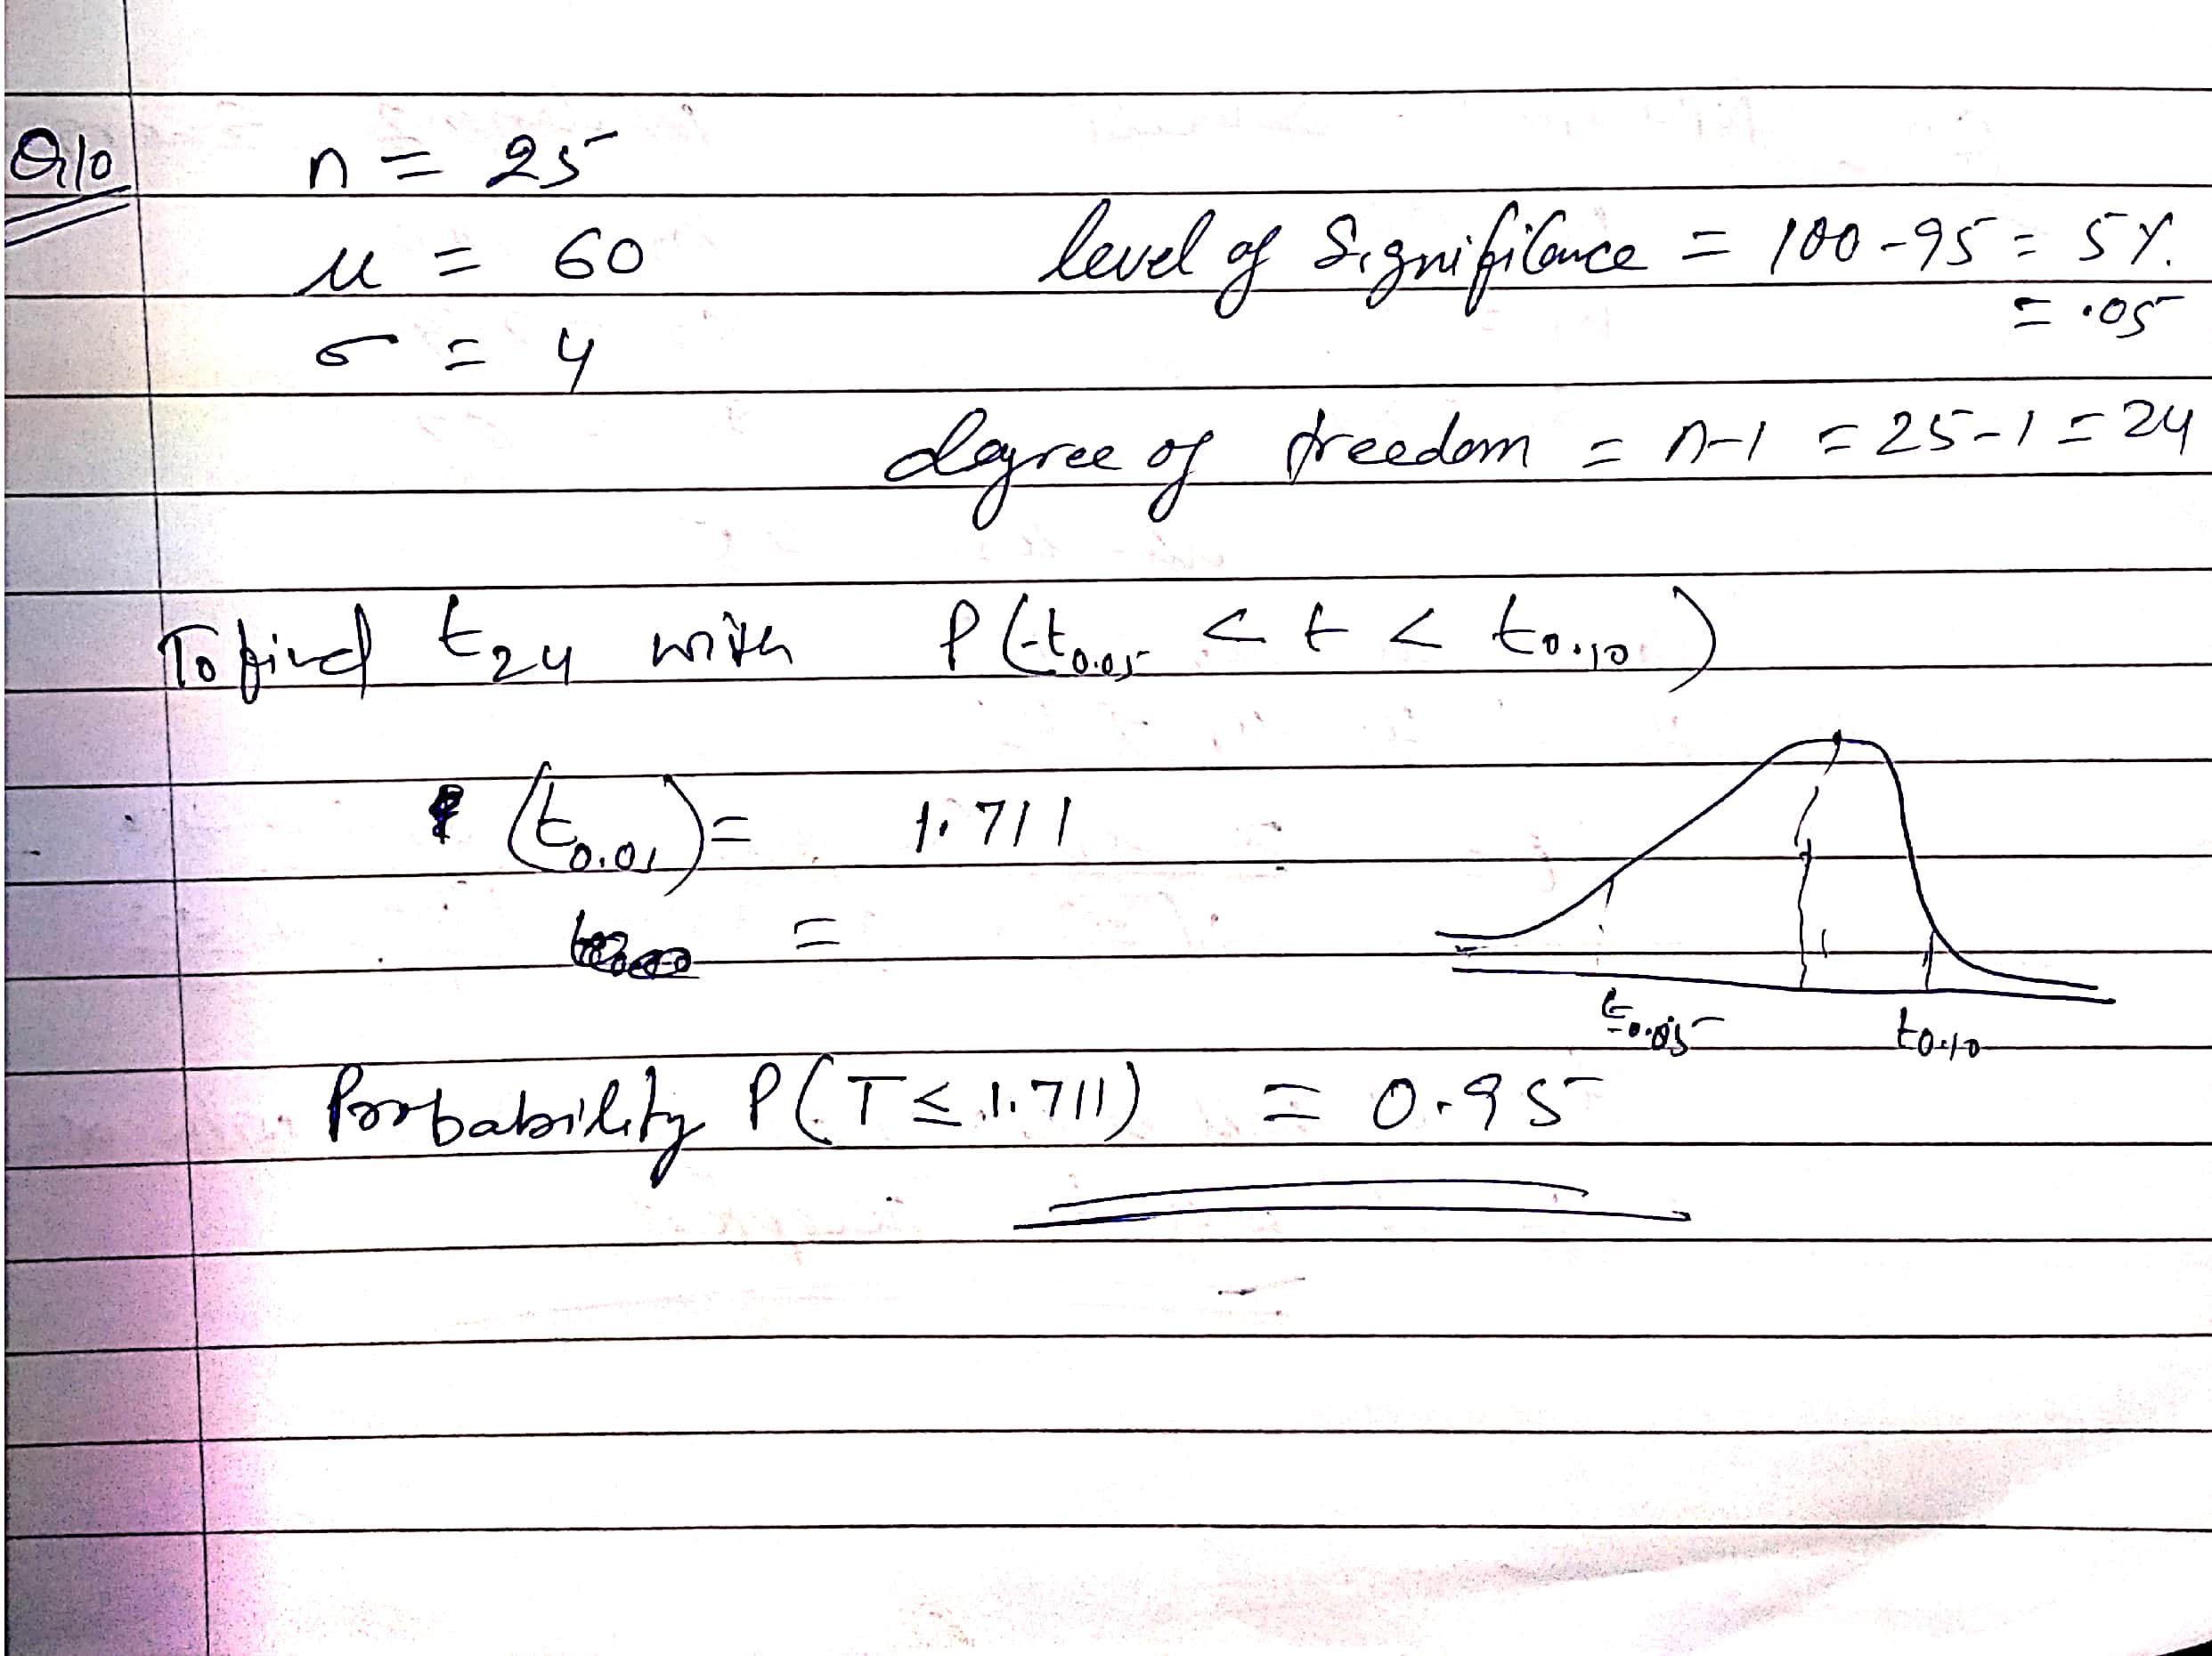 Q10
n = 25
μ = 60
level of Significance = 100-95 = 5%
= .05
σ = 4
degree of freedom = n-1 = 25-1 = 24
To find t24 with P(-t0.05 < t < t0.10)
(t0.01) = 1.711
=
t-0.05 t0.10
Probability P(T ≤ 1.711) = 0.95